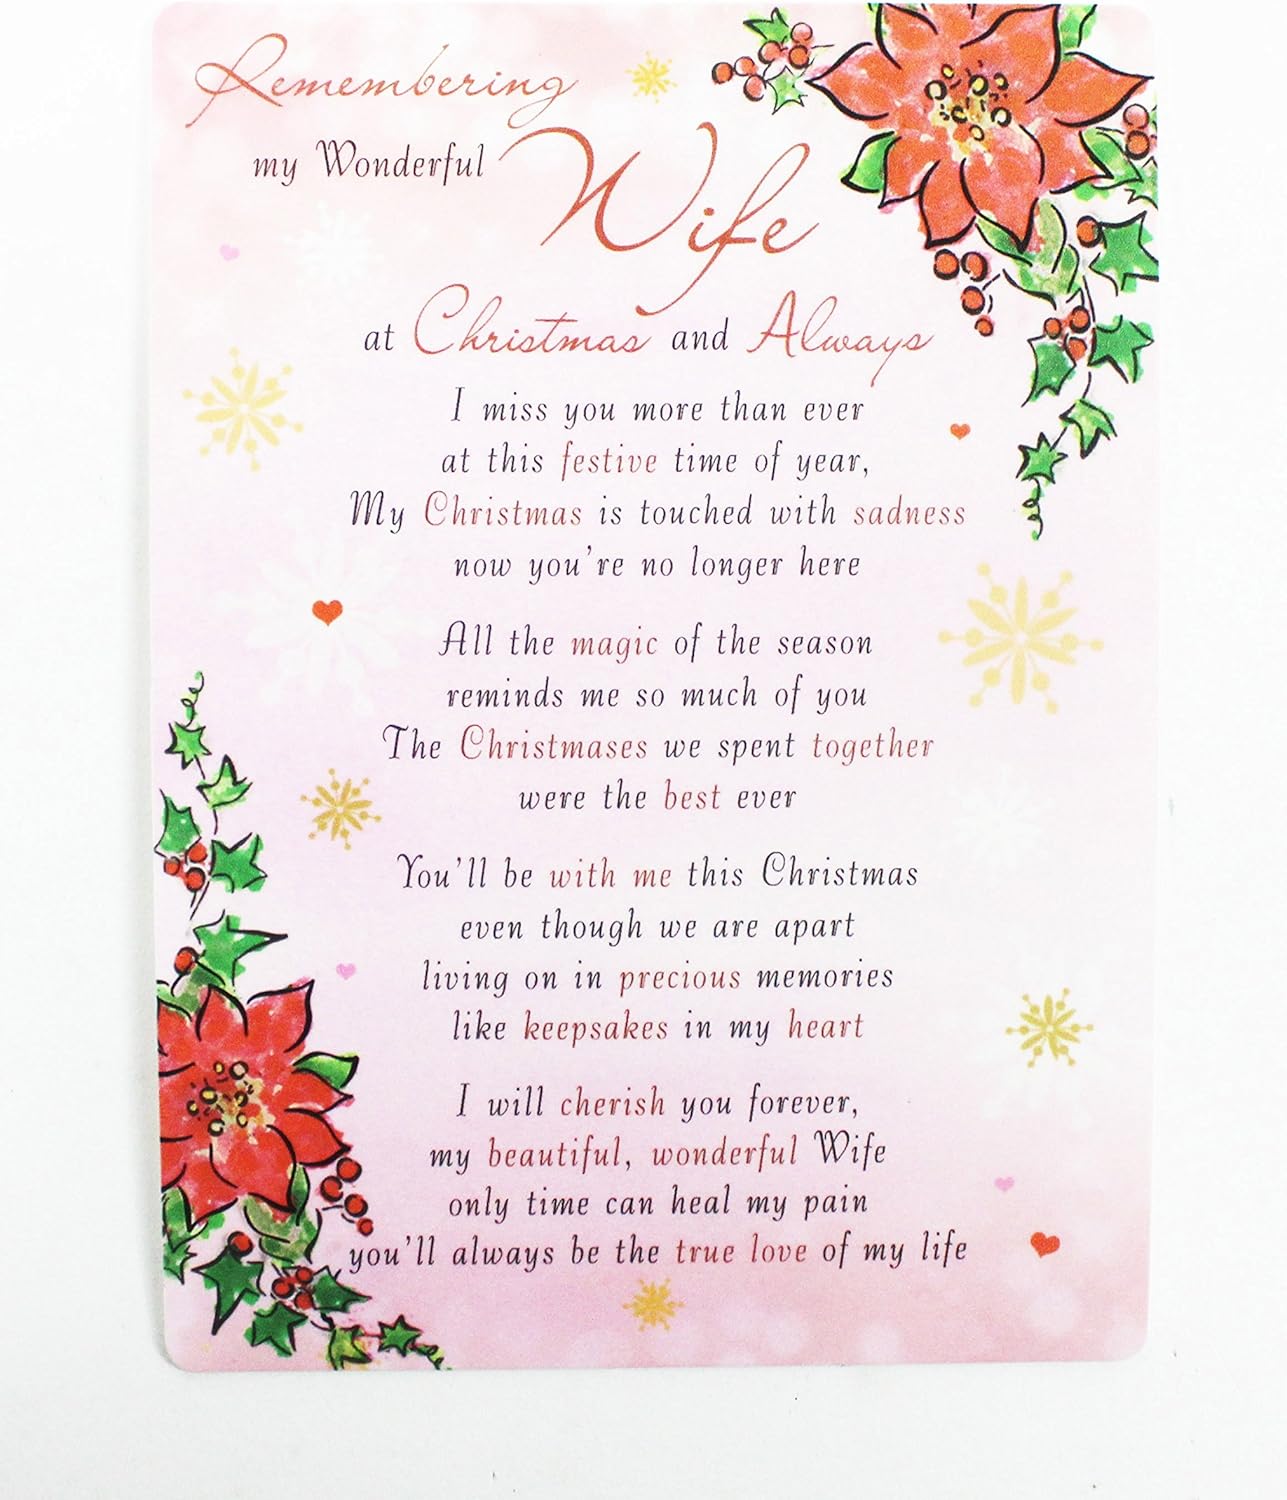 Remembering
my Wonderful Wife
at Christmas and Always
I miss you more than ever
at this festive time of year,
My Christmas is touched with sadness
now you're no longer here
All the magic of the season
reminds me so much of you
The Christmases we spent together
were the best ever
You'll be with me this Christmas
even though we are apart
living on in precious memories
like keepsakes in my heart
I will cherish you forever,
my beautiful, wonderful Wife
only time can heal my pain
you'll always be the true love of my life